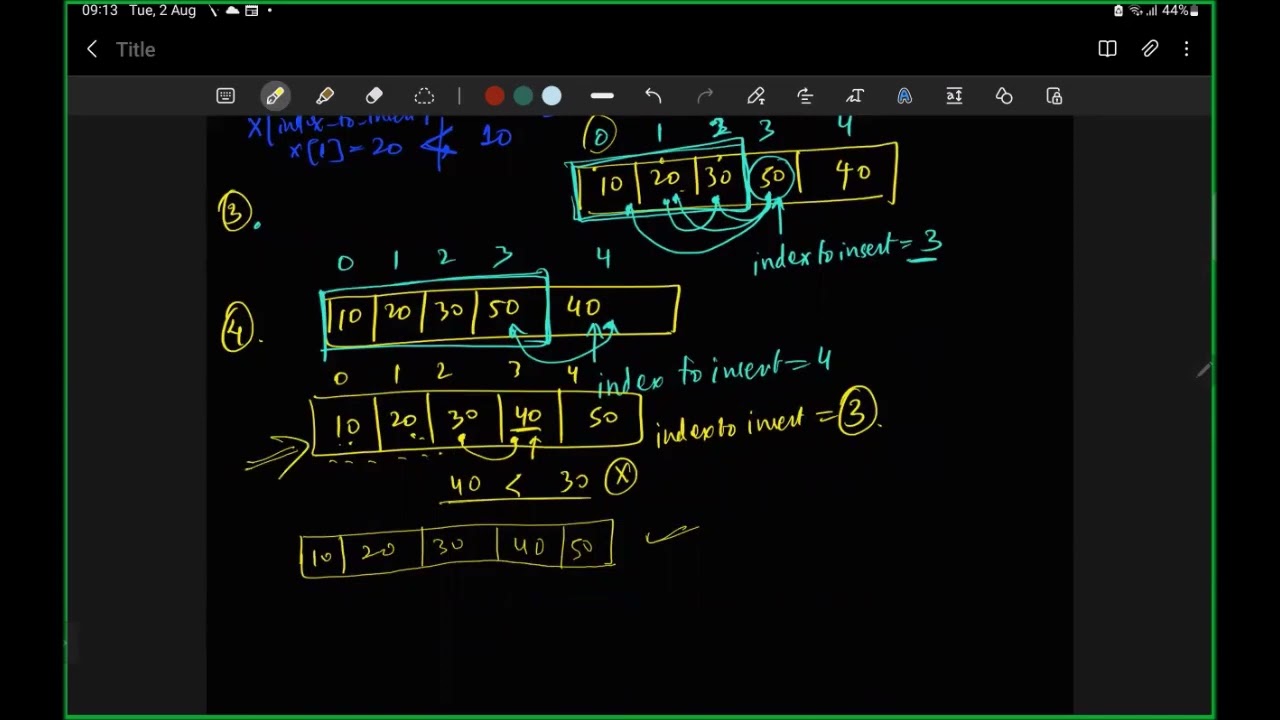 09:13 Tue, 2 Aug
44%
Title
x[index-to-insert]
x[1] = 20 < 10
0 1 2 3 4
10 20 30 50 40
③.
index to insert = 3
0 1 2 3 4
④.
10 20 30 50 40
index to insert = 4
0 1 2 3 4
10 20 30 40 50
index to insert = ③.
40 < 30 ⓧ
10 20 30 40 50